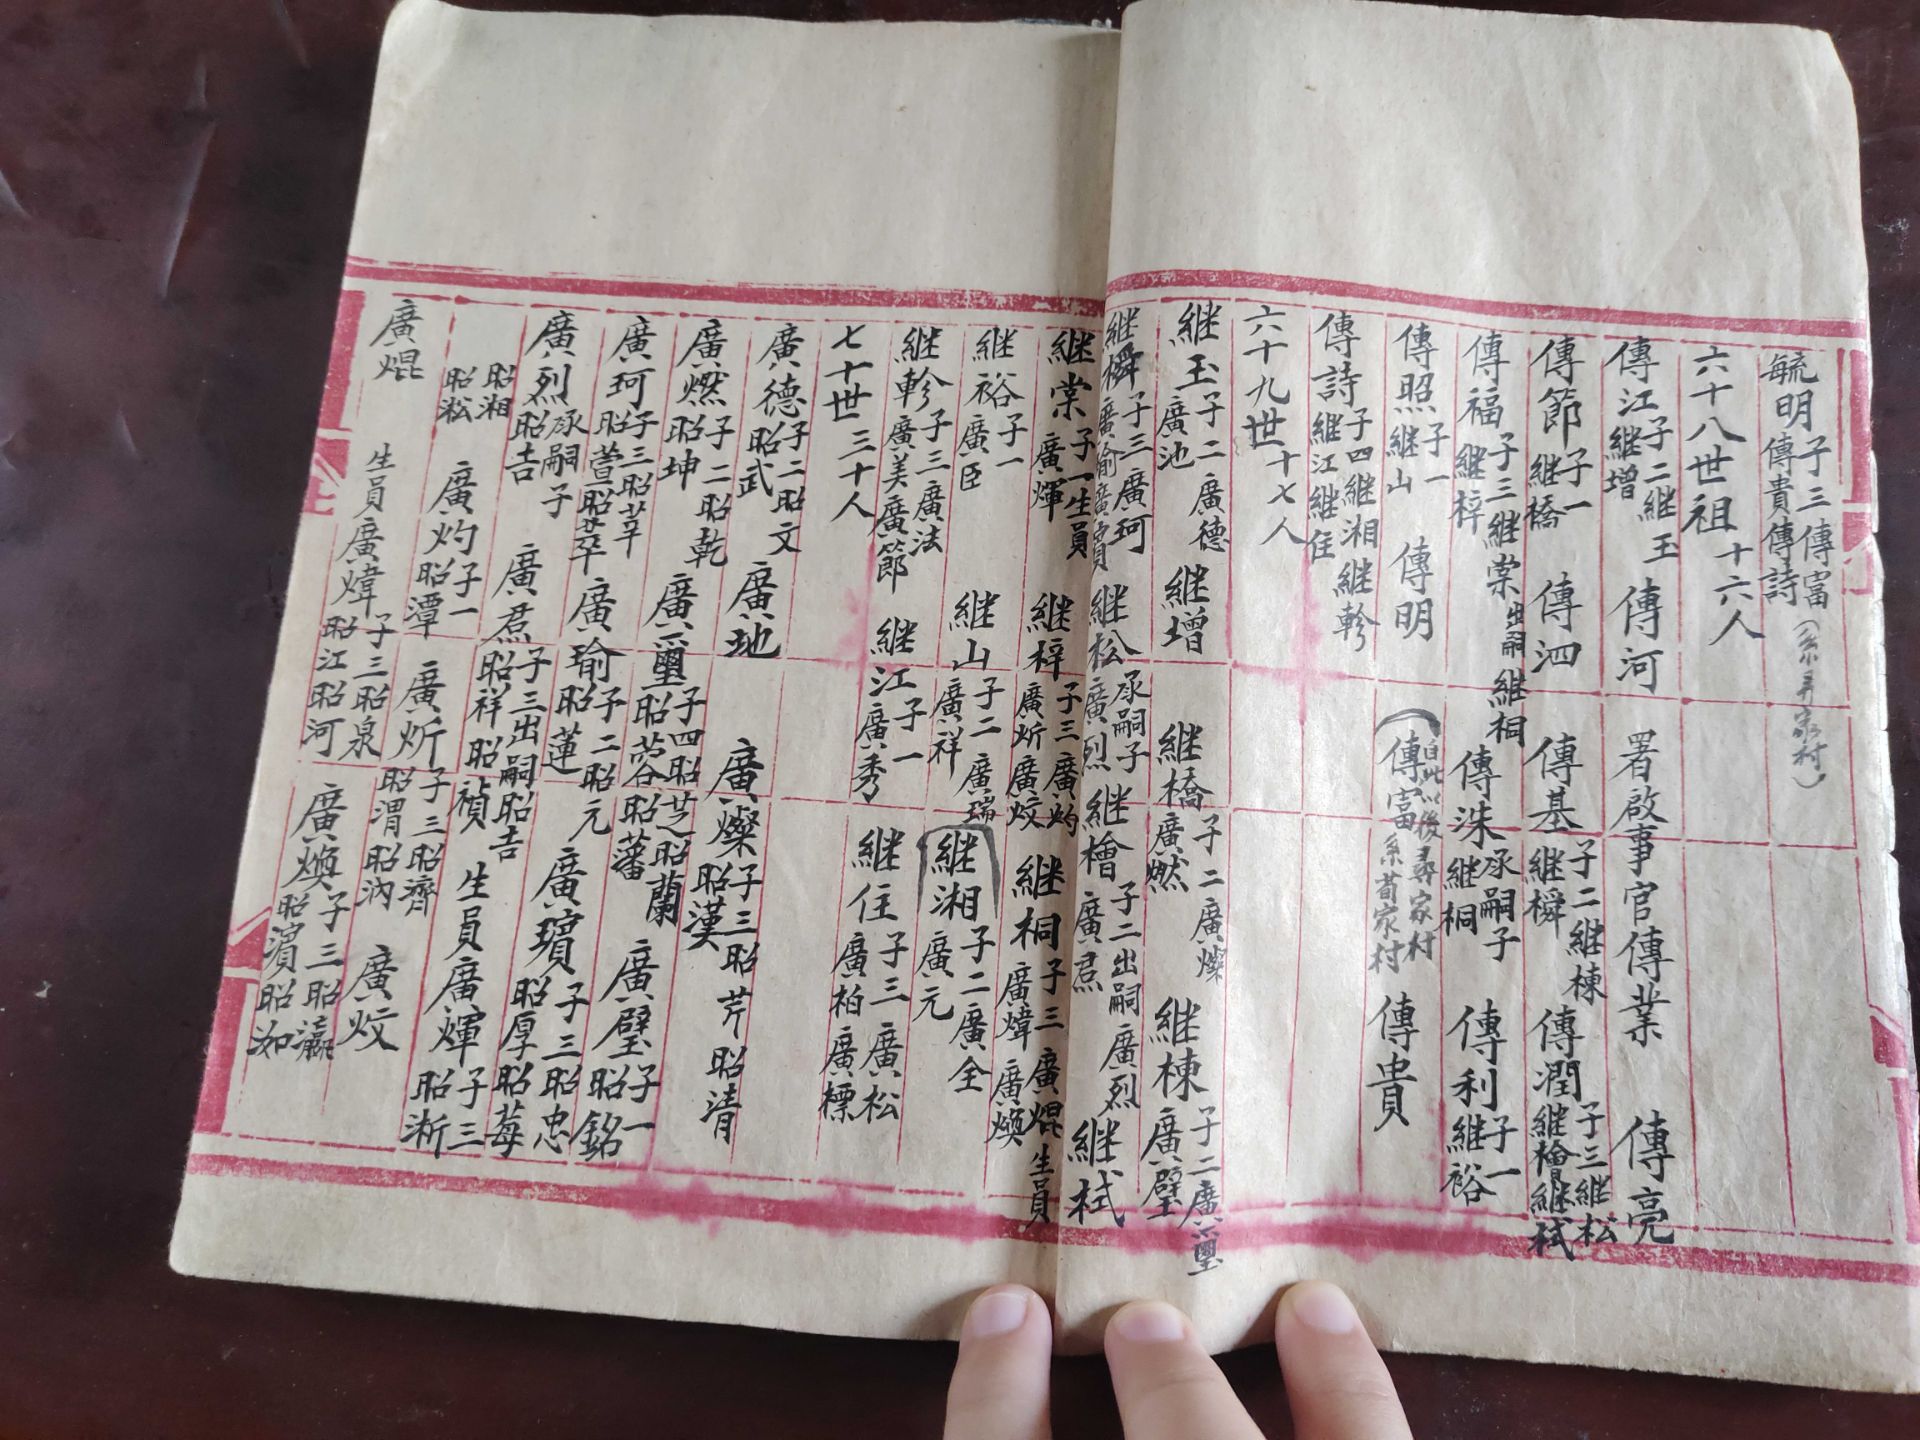 毓明 子三傳富傳貴傳詩（系弄家村）
六十八世祖 十六人
傳江 子二繼玉繼增 傳河 署啟事官傳業 傳亮
傳節 子一繼橋 傳泗 傳基 子二繼棟繼橓 傳潤 子三繼松繼檜繼栻
傳福 子三繼棠出嗣繼桐繼梓 傳洙 承嗣子繼桐 傳利 子一繼裕
傳照 子一繼山 傳明 （自此以後尋家村 傳富 系荀家村 傳貴
傳詩 子四繼湘繼軫繼江繼住
六十九世 十七人
繼玉 子二廣德廣池 繼增 繼橋 子二廣燦廣燃 繼棟 子二廣璽廣璧
繼橓 子三廣珂廣瑜廣璸 繼松 承嗣子廣烈 繼檜 子二出嗣廣烈廣焄 繼栻
繼棠 子一生員廣煇 繼梓 子三廣灼廣炘廣炆 繼桐 子三廣焜生員廣煒廣煥
繼裕 子一廣臣 繼山 子二廣瑞廣祥 繼湘 子二廣全廣元
繼軫 子三廣法廣美廣節 繼江 子一廣秀 繼住 子三廣松廣柏廣標
七十世 三十人
廣德 子二昭文昭武 廣地 廣燦 子三昭芹昭清昭漢
廣燃 子二昭乾昭坤 廣璽 子四昭芝昭蘭昭蓉昭藩 廣璧 子一昭銘
廣珂 子三昭莘昭萱昭萃 廣瑜 子二昭元昭蓮 廣璸 子三昭忠昭厚昭莓
廣烈 承嗣子昭吉 廣焄 子三出嗣昭吉昭祥昭禎 生員廣煇 子三昭淅
昭湘昭淞 廣灼 子一昭潭 廣炘 子三昭濟昭渭昭汭 廣炆
廣焜 生員廣煒 子三昭泉昭江昭河 廣煥 子三昭瀛昭濵昭洳